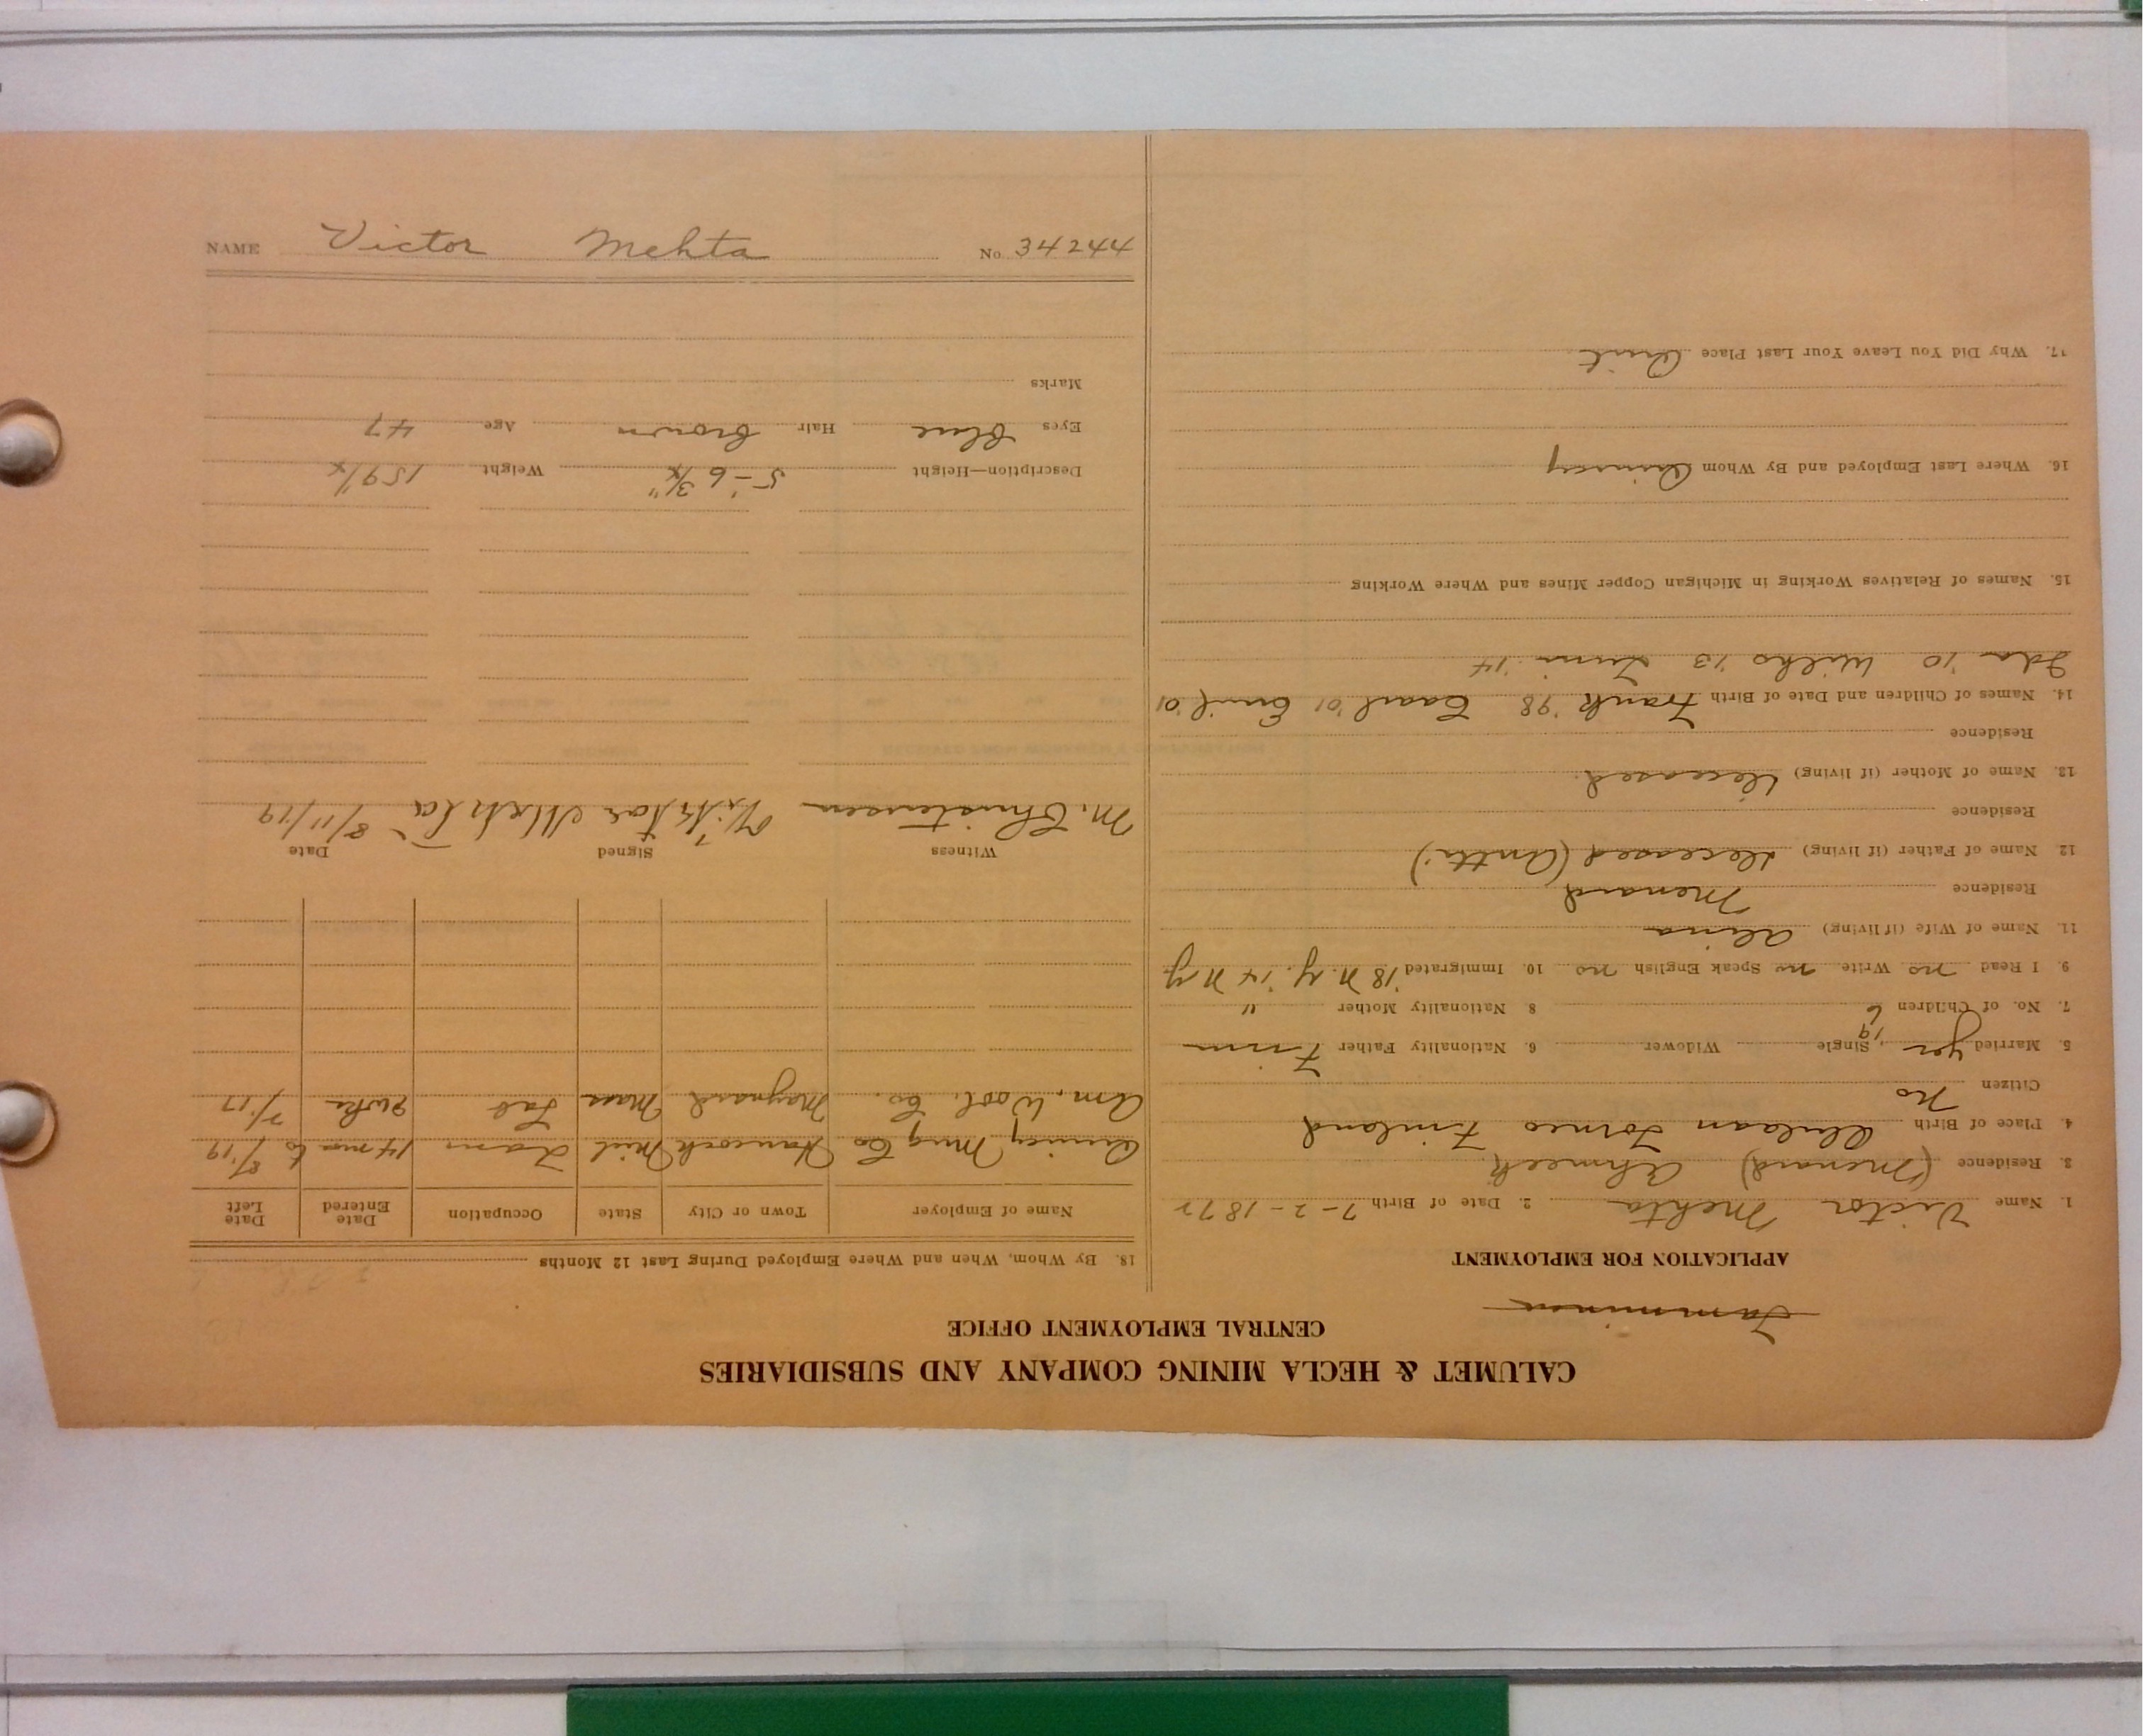 CALUMET & HECLA MINING COMPANY AND SUBSIDIARIES
CENTRAL EMPLOYMENT OFFICE
APPLICATION FOR EMPLOYMENT
1. Name Victor Mehta 2. Date of Birth 7-2-1872
3. Residence (Menard) Ahmeek
4. Place of Birth Torneo Finland
Citizen no
5. Married yes 19 Single Widower 6. Nationality Father Finn
7. No. of Children 6 8 Nationality Mother "
9. I Read no Write no Speak English no 10. Immigrated '18 N.Y. '14 N Y
11. Name of Wife (if living) Alina
Residence Menard
12. Name of Father (if living) deceased (Antti)
Residence
13. Name of Mother (if living) Deceased.
Residence
14. Names of Children and Date of Birth Frank '98 Caarl '01 Emil '01
Ida '10 Wilho '13 '14
15. Names of Relatives Working in Michigan Copper Mines and Where Working
16. Where Last Employed and By Whom Quincy
17. Why Did You Leave Your Last Place Quit.
18. By Whom, When and Where Employed During Last 12 Months
Name of Employer Town or City State Occupation Date Entered Date Left
Quincy Mng Co Hancock Mich Tram 14 mo to 8/'19
Am. Wool. Co. Maynard Mass Lab 7/'17
Witness Signed Date
M. Christensen Mehta 8/11/19
Description—Height 5'-6 3/4" Weight 159 1/4
Eyes Blue Hair Brown Age 47
Marks
NAME Victor Mehta No. 34244